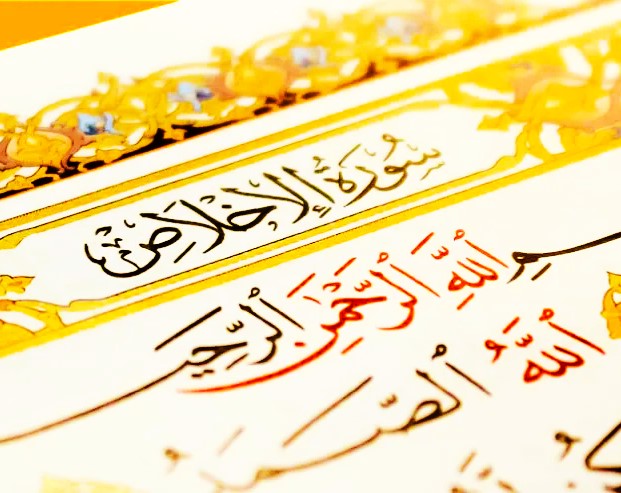 سُورَةُ الإِخْلَاصِ
سمِ اللهِ الرَّحْمٰنِ الرَّحِيـ
اَللهُ الصَّمَد